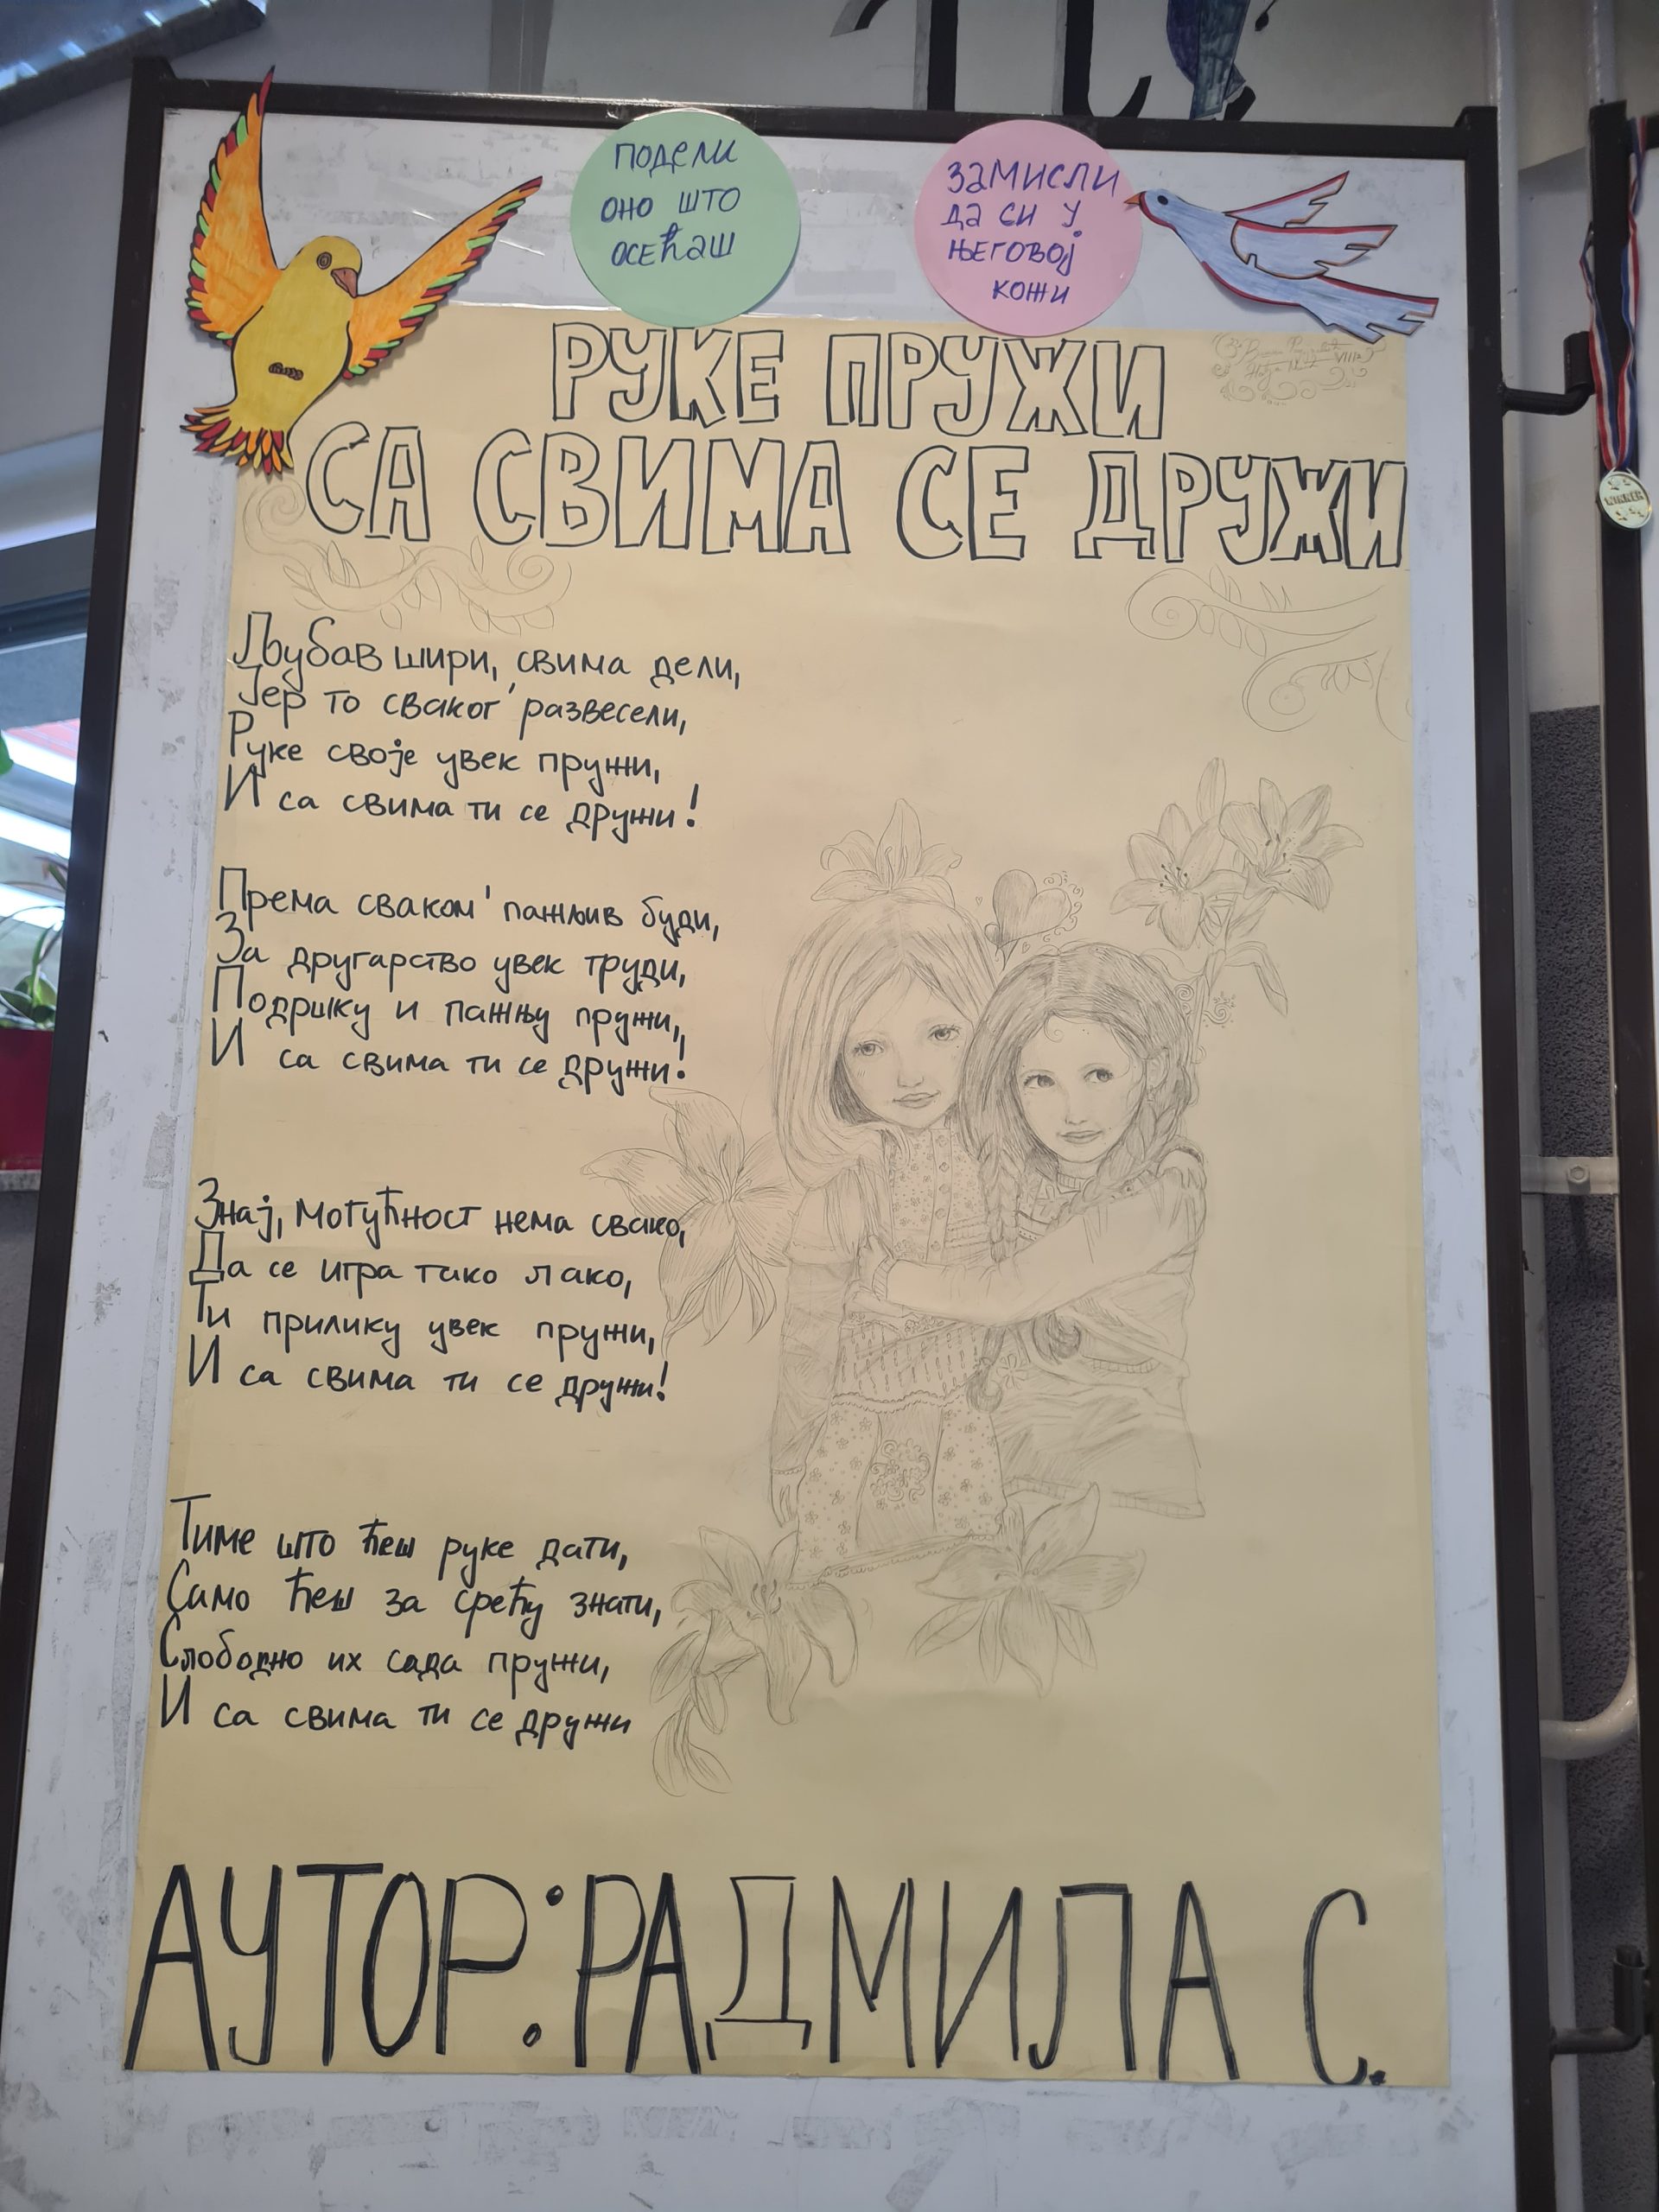 ПОДЕЛИ
ОНО ШТО
ОСЕЋАШ
ЗАМИСЛИ
ДА СИ У
ЊЕГОВОЈ
КОЖИ
РУКЕ ПРУЖИ
СА СВИМА СЕ ДРУЖИ
VIII
Љубав шири, свима дели,
Јер то сваког' развесели,
Руке своје увек пружи,
И са свима ти се дружи!
Према сваком' пажљив буди,
За другарство увек труди,
Подршку и пажњу пружи,
И са свима ти се дружи!
Знај, могућност нема свако,
Да се игра тако лако,
Ти прилику увек пружи,
И са свима ти се дружи!
Тиме што ћеш руке дати,
Само ћеш за срећу знати,
Слободно их сада пружи,
И са свима ти се дружи
АУТОР: РАДМИЛА С.
WINNER